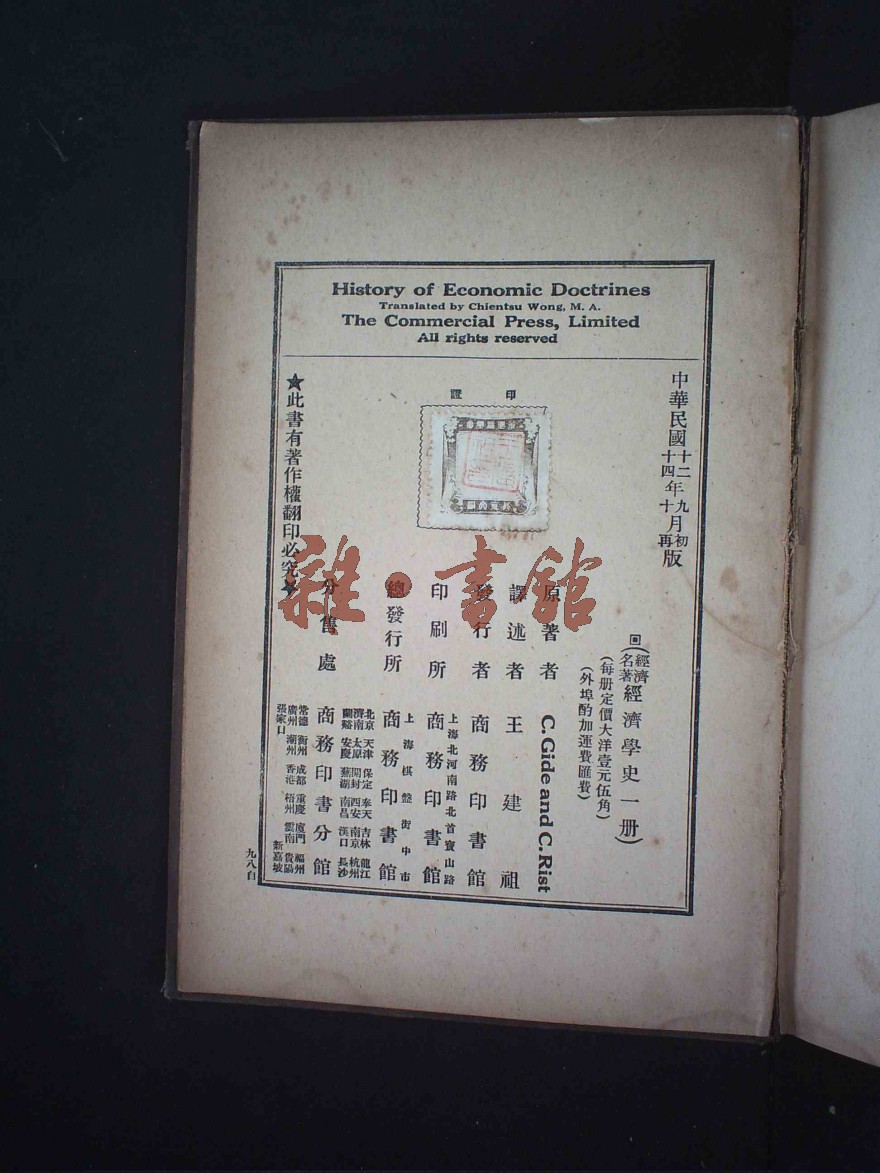 History of Economic Doctrines
Translated by Chientsu Wong, M. A.
The Commercial Press, Limited
All rights reserved
中華民國十二年九月初版
十四年十月再版
回(經濟名著經濟學史一册)
(每册定價大洋壹元伍角)
(外埠酌加運費匯費)
原著者 C. Gide and C. Rist
譯述者 王建祖
發行者 商務印書館
上海北河南路北首寶山路
印刷所 商務印書館
上海棋盤街中市
總發行所 商務印書館
北京 天津 保定 奉天 吉林 龍江
濟南 太原 開封 西安 南京 杭州
蘭谿 安慶 蕪湖 南昌 漢口 長沙
分售處 商務印書分館
常德 衡州 成都 重慶 廈門 福州
廣州 潮州 香港 梧州 雲南 貴陽
張家口 新嘉坡
★此書有著作權翻印必究★
印證
九八自
雜·書館